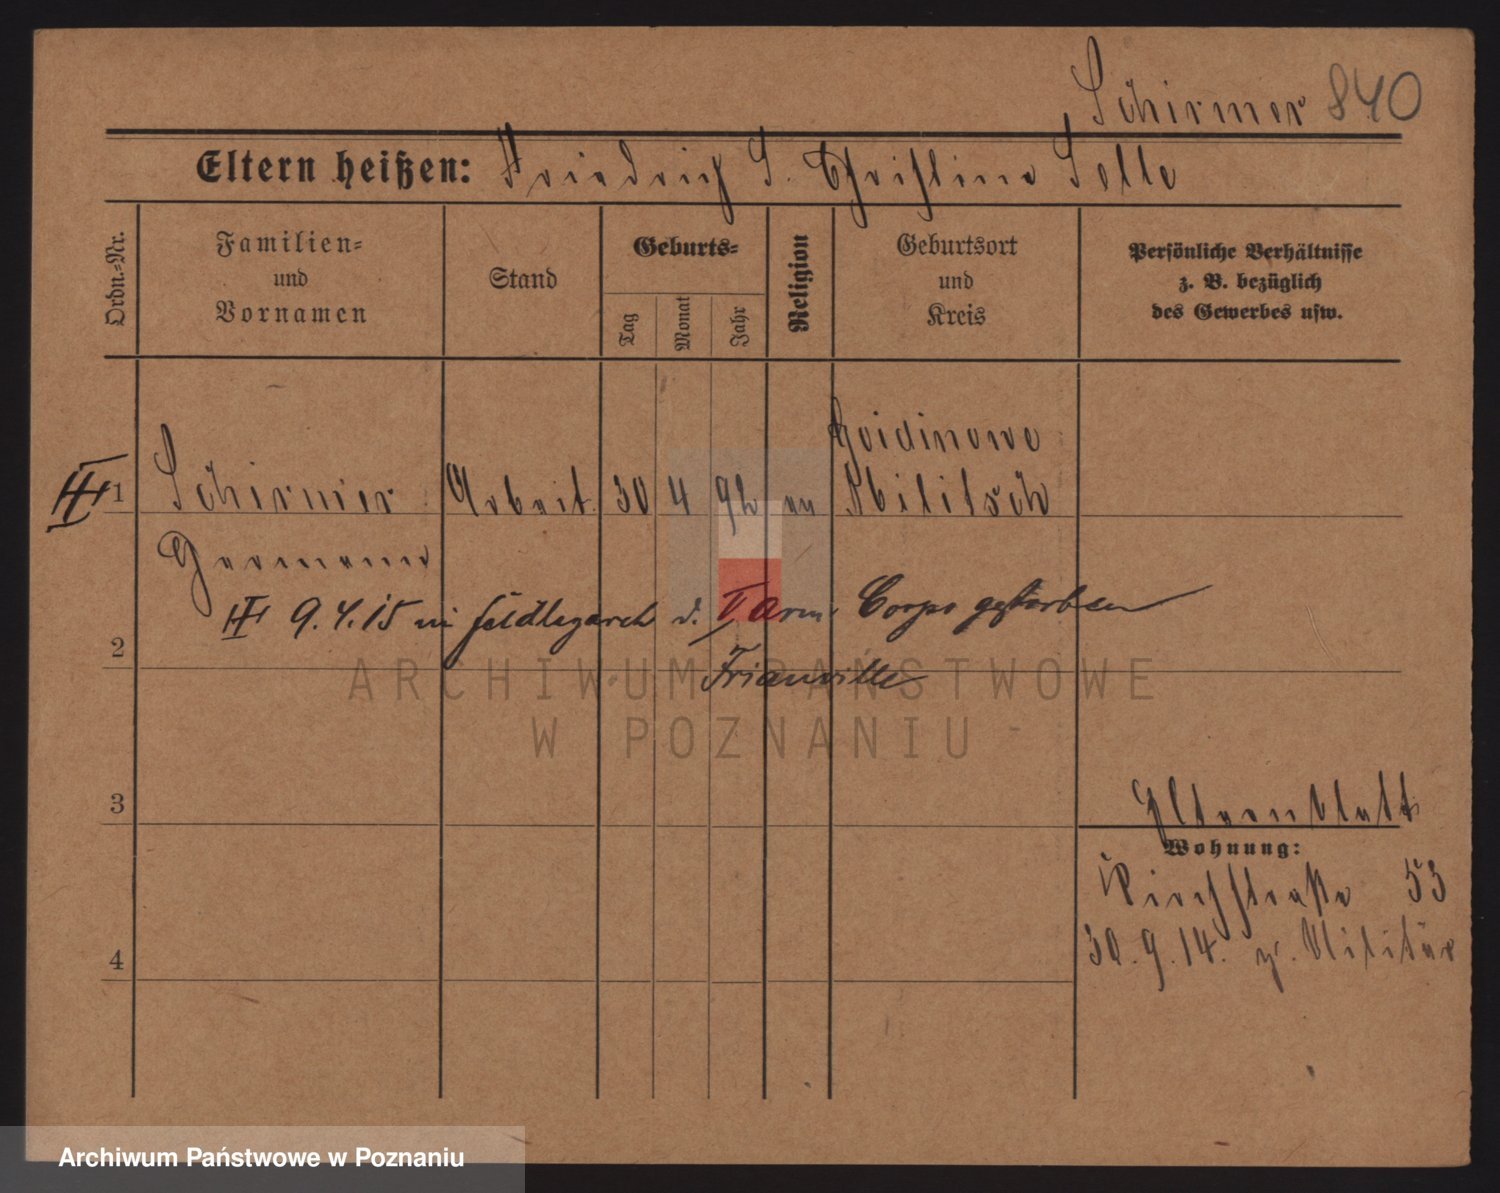 Schirmer 840
Eltern heißen: Friedrich S. Christine Selle
Ordn.-Nr.
Familien- und Vornamen
Stand
Geburts-
Tag
Monat
Jahr
Religion
Geburtsort und Kreis
Persönliche Verhältnisse z. B. bezüglich des Gewerbes usw.
1 Schirmer Arbeit. 30 4 92 ev Militsch
Hermann
9.4.15 in d. V Arm. Corps gestorben
2
Frianville
ARCHIWUM PAŃSTWOWE
W POZNANIU
3
Elternblatt
Wohnung:
Kirchstraße 53
30.9.14. z. Militär
4
Archiwum Państwowe w Poznaniu